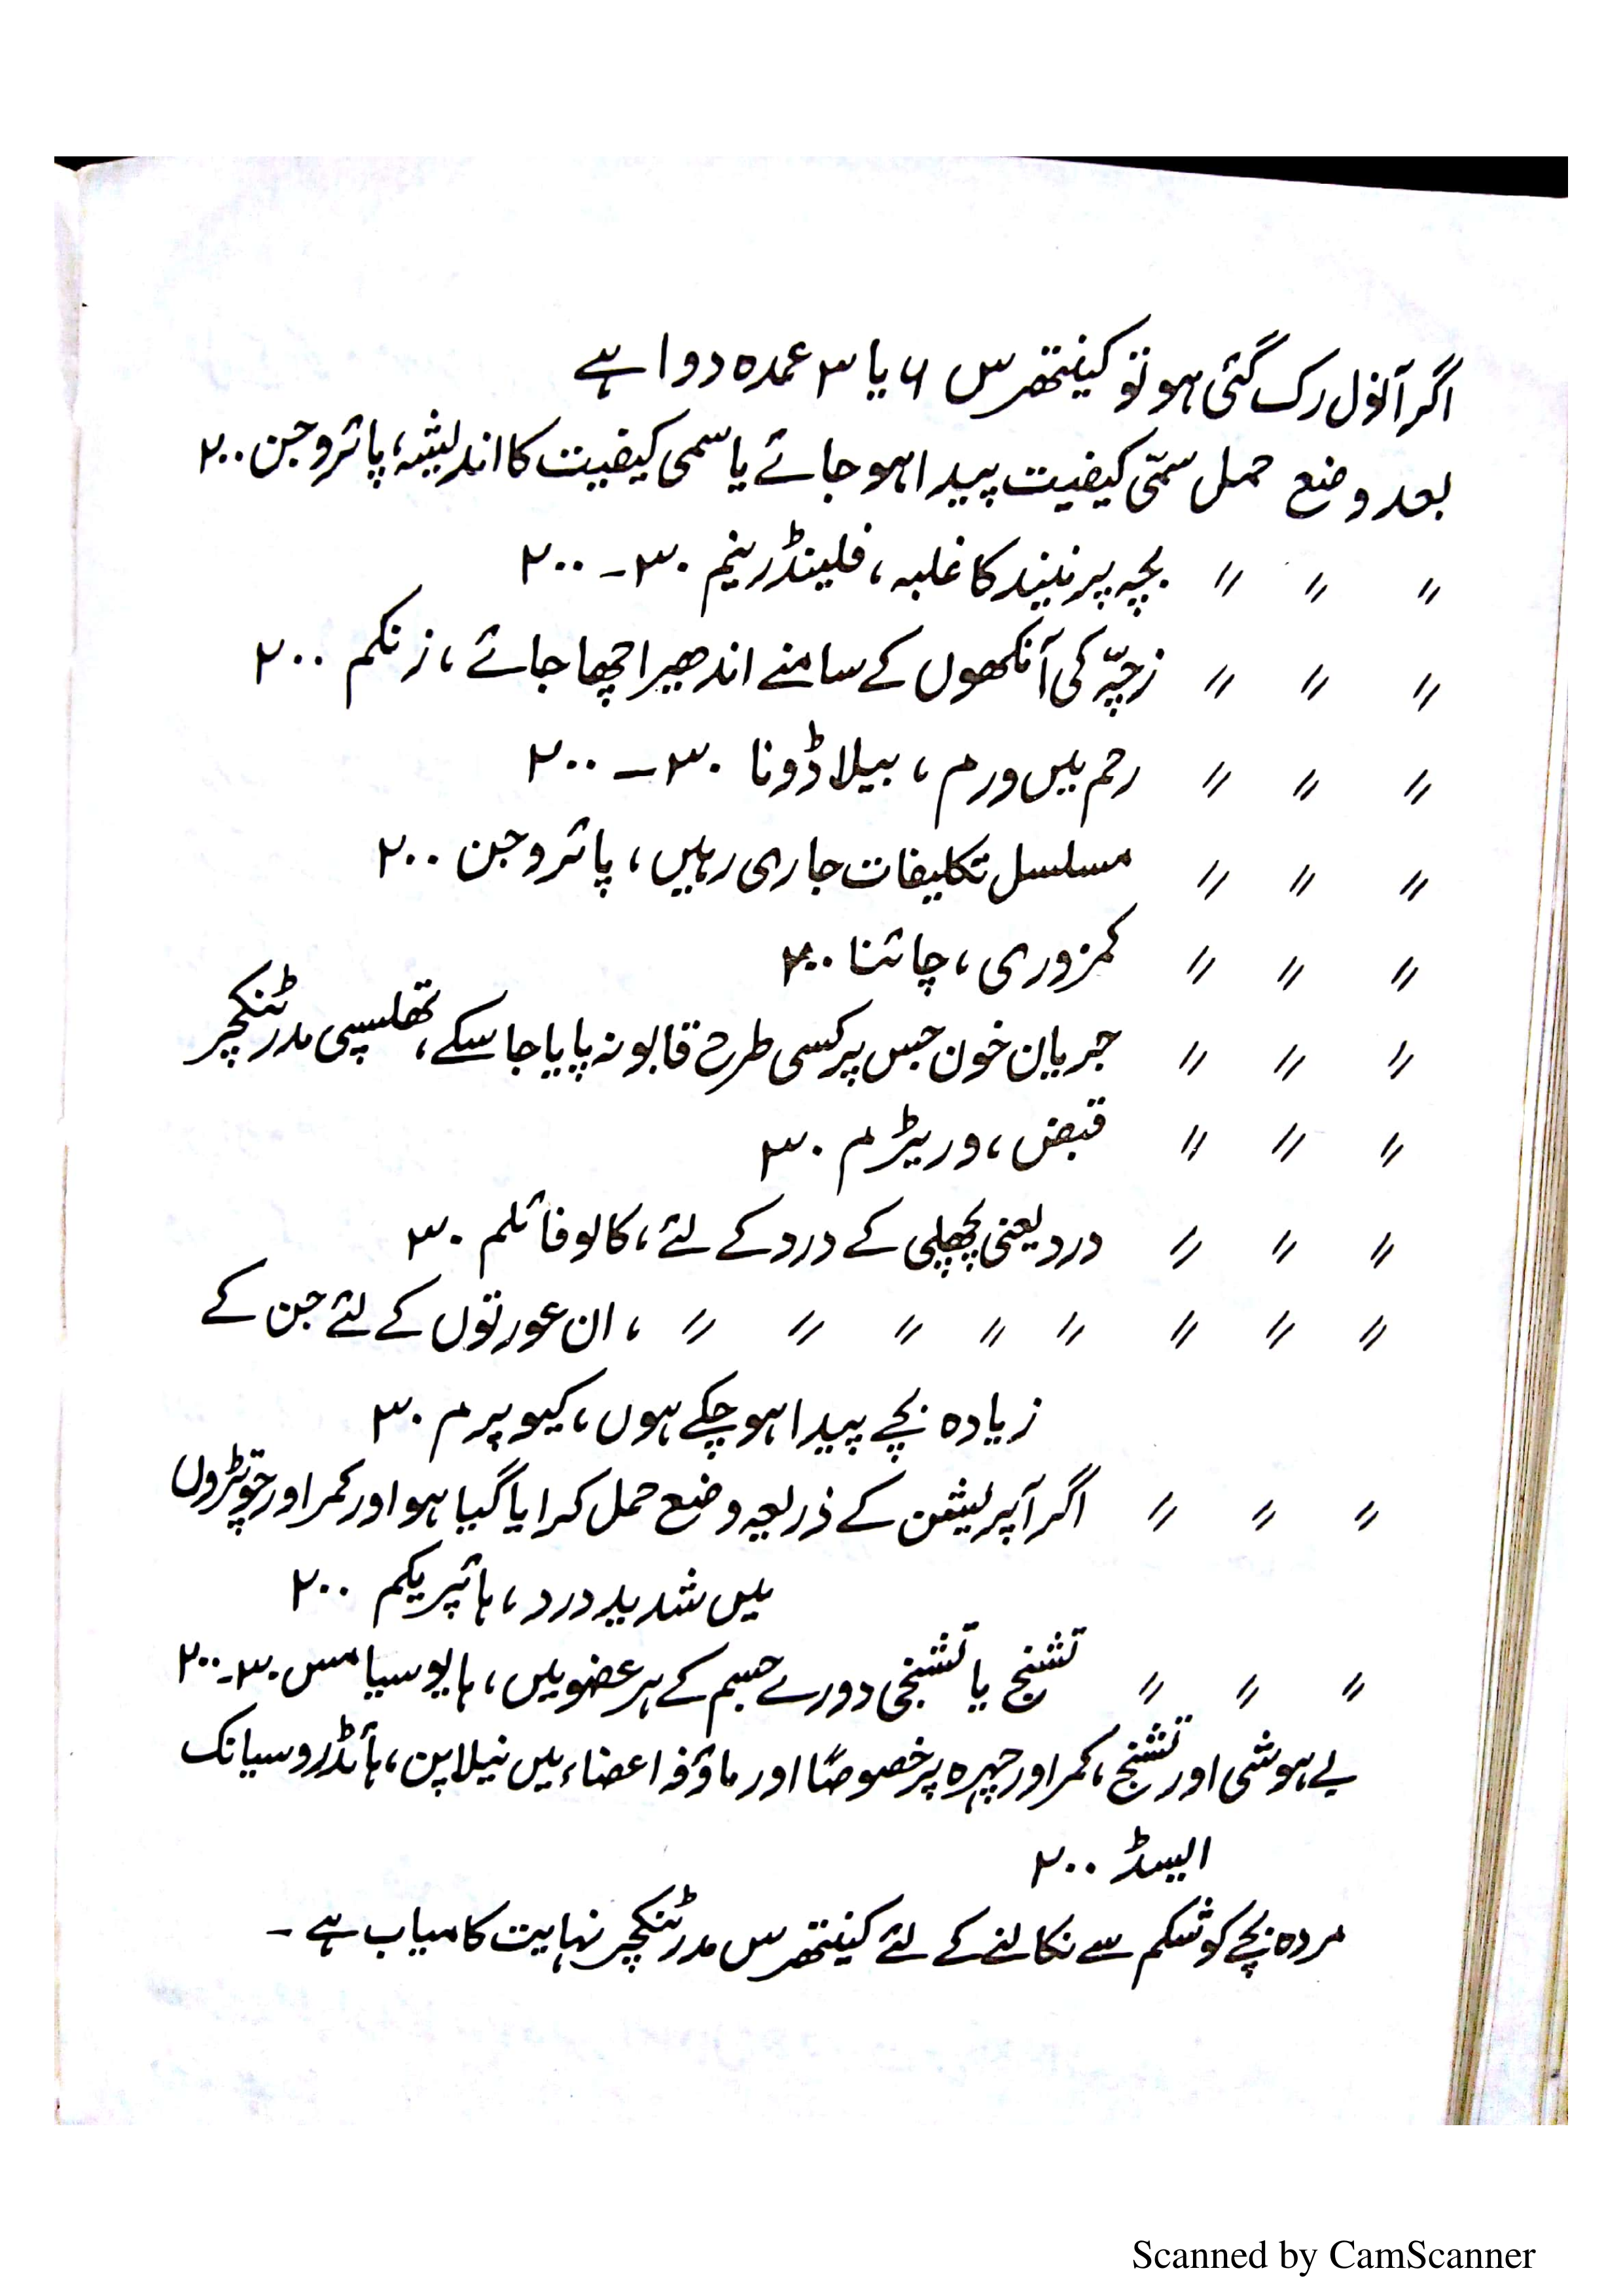 اگر آنول رک گئی ہو تو کینتھرس ۶ یا ۳ عمدہ دوا ہے
بعد وضع حمل سمّی کیفیت پیدا ہو جائے یا سمی کیفیت کا اندیشہ، پائروجن ۲۰۰
〃 〃 〃 بچہ پر نیند کا غلبہ، فلینڈرینم ۳۰ - ۲۰۰
〃 〃 〃 زچّہ کی آنکھوں کے سامنے اندھیرا چھا جائے، زنکم ۲۰۰
〃 〃 〃 رحم میں ورم، بیلاڈونا ۳۰ - ۲۰۰
〃 〃 〃 مسلسل تکلیفات جاری رہیں، پائروجن ۲۰۰
〃 〃 〃 کمزوری، چائنا
〃 〃 〃 جریان خون جس پر کسی طرح قابو نہ پایا جا سکے، تھلسپی مدر ٹنکچر
〃 〃 〃 قبض، وریٹرم ۳۰
〃 〃 〃 درد یعنی پچھلی کے درد کے لئے، کالوفائلم ۳۰
〃 〃 〃 〃 〃 〃 〃 〃 ، ان عورتوں کے لئے جن کے
زیادہ بچے پیدا ہو چکے ہوں، کیوپرم ۳۰
〃 〃 〃 اگر آپریشن کے ذریعہ وضع حمل کرایا گیا ہو اور کمر اور چوتڑوں
میں شدید درد، ہائپریکم ۲۰۰
〃 〃 〃 تشنج یا تشنجی دورے جسم کے ہر عضو میں، ہایوسیامس ۳۰-۲۰۰
بے ہوشی اور تشنج، کمر اور چہرہ پر خصوصًا اور ماؤفہ اعضاء میں نیلا پن، ہائڈروسیانک
ایسڈ ۲۰۰
مردہ بچے کو شکم سے نکالنے کے لئے کینتھرس مدر ٹنکچر نہایت کامیاب ہے -
Scanned by CamScanner